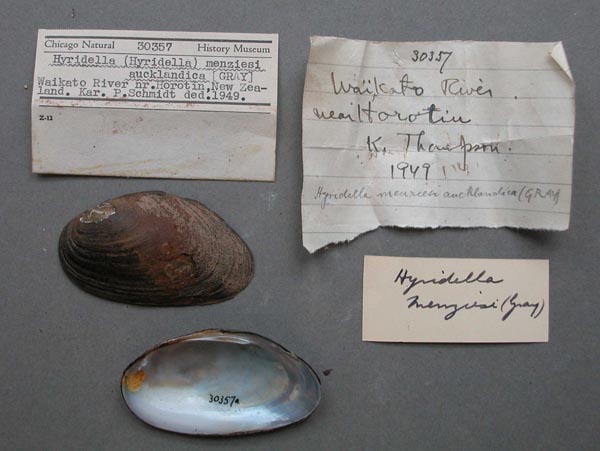 Chicago Natural 30357 History Museum
Hyridella (Hyridella) menziesi
aucklandica [GRAY]
Waikato River nr.Horotin,New Zea-
land. Kar. P.Schmidt ded.1949.
Z-12
30357
Waikato River.
near Horotiu
K. Thompson.
1949
Hyridella menziesi aucklandica (GRAY)
Hyridella
Menziesi (Gray)
30357a